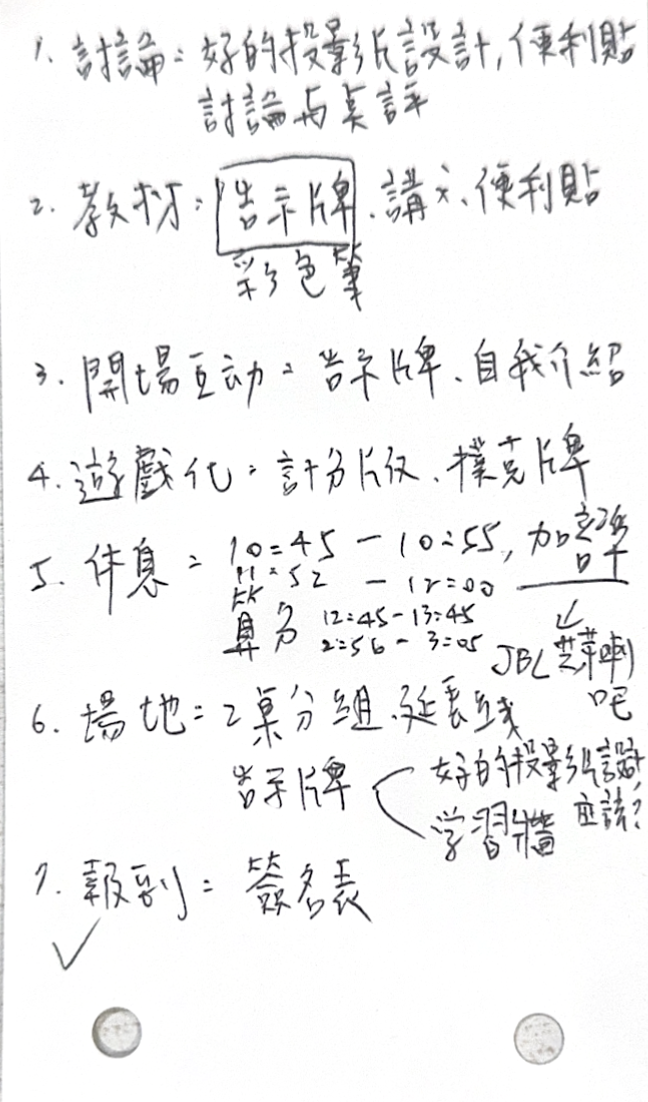 1. 討論：好的投影片設計，便利貼
討論与点評
2. 教材：告示牌、講义、便利貼
彩色筆
3. 開場互动：告示牌、自我介紹
4. 遊戲化：計分板、撲克牌
5. 休息：10:45－10:55，加
11:52－12:00
算分 12:45－13:45
2:56－3:05
JBL 喇
吧
6. 場地：2桌分組、延長线
告示牌
好的投影片設計
應該？
学習牆
7. 報到：簽名表